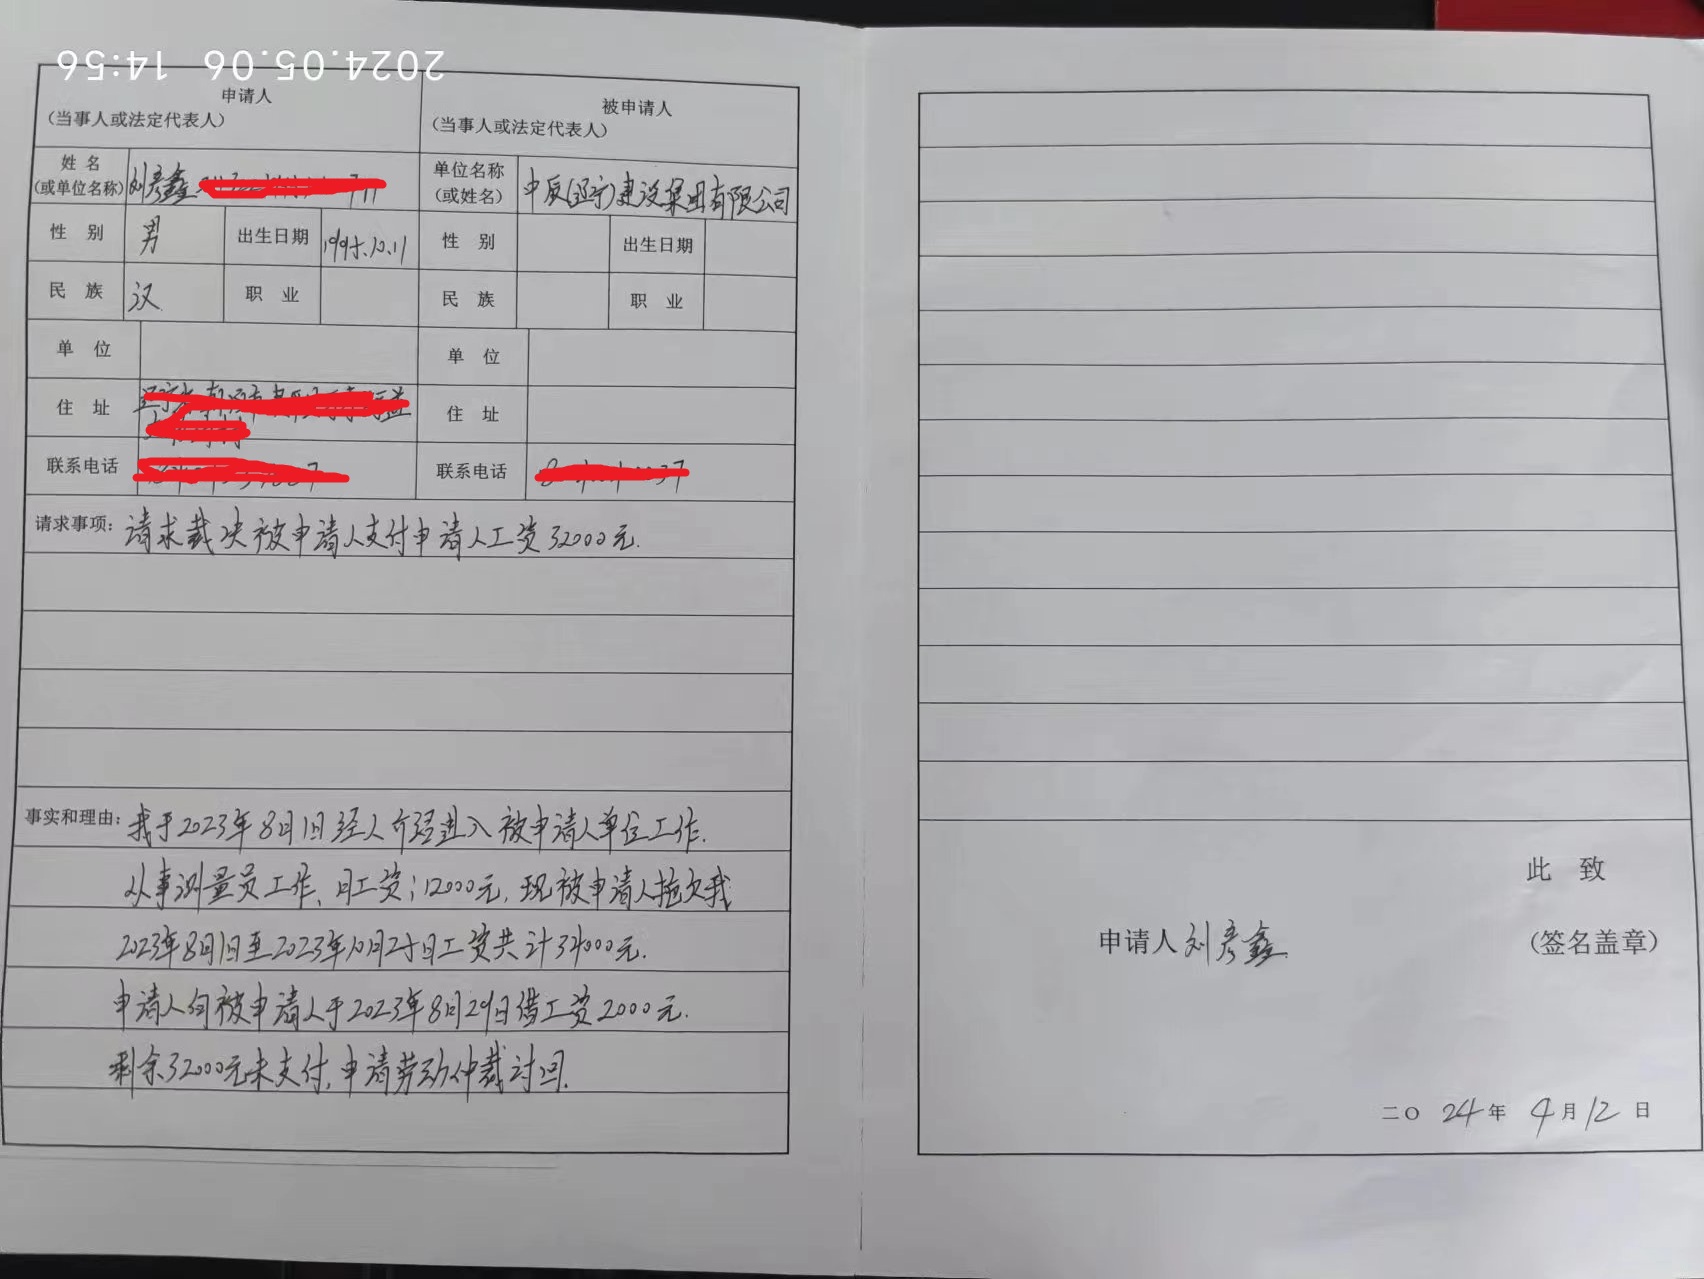 2024.05.06 14:56
申请人
(当事人或法定代表人)
被申请人
(当事人或法定代表人)
姓名
(或单位名称)
刘彦鑫
单位名称
(或姓名)
中辰(辽宁)建设集团有限公司
性别
男
出生日期
1995.10.11
性别
出生日期
民族
汉
职业
民族
职业
单位
单位
住址
住址
联系电话
联系电话
请求事项:请求裁决被申请人支付申请人工资32000元.
事实和理由:我于2023年8月1日经人介绍进入被申请人单位工作.
从事测量员工作、月工资:12000元,现被申请人拖欠我
2023年8月1日至2023年10月25日工资共计34000元.
申请人向被申请人于2023年8月29日借工资2000元.
剩余32000元未支付,申请劳动仲裁讨回.
此致
申请人刘彦鑫 (签名盖章)
二〇24年4月12日